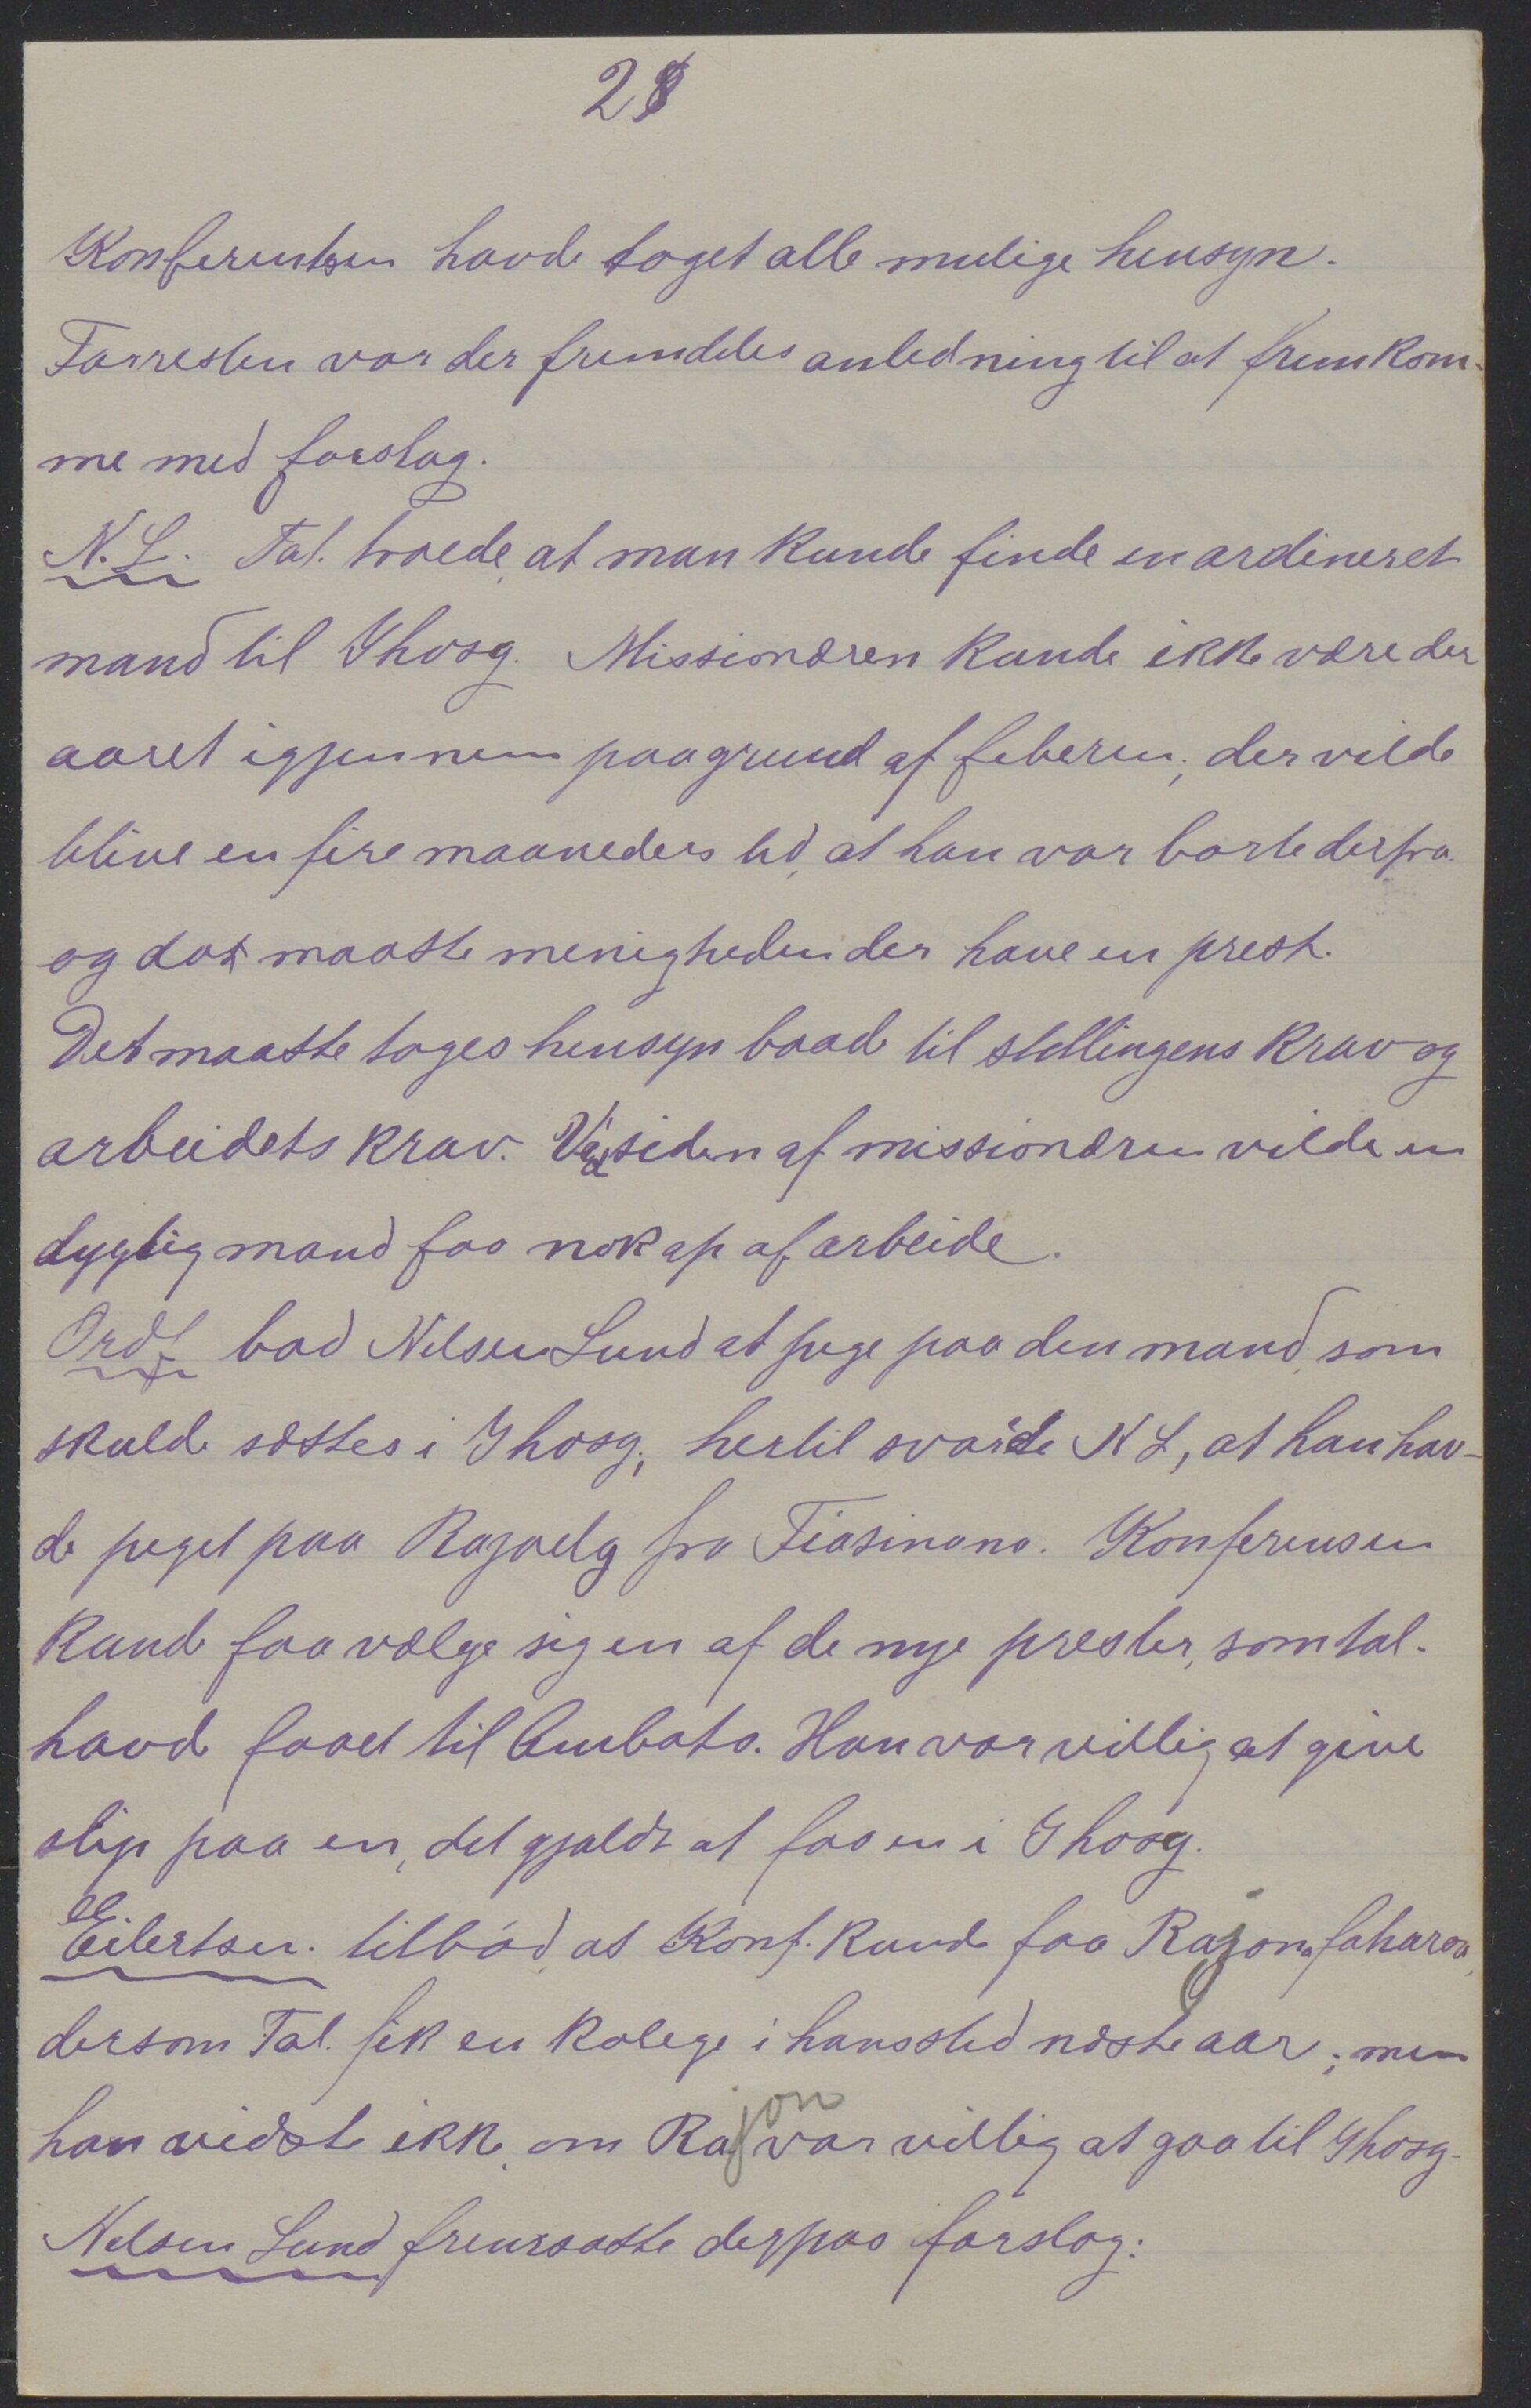 28
Konferentsen havde toget alle mulige hensyn.
Forresten var der fremdeles anledning til at fremkom-
me med forslag.
N. L. Tal. troede, at man kunde finde en ordineret
mand til Ihosy. Missionæren kunde ikke være der
aaret igjennem paa grund af feberen; der vilde
blive en fire maaneders tid, at han var borte derfra
og da maatte menigheden der have en prest.
Det maatte toges hensyn baade til stillingens krav og
arbeidets krav. Ved siden af missionæren vilde en
dygtig mand faa nok op af arbeide.
Ordf bad Nilsen Lund at pege paa den mand, som
skulde sættes i Ihosy; hertil svarde N L, at han hav-
de peget paa Rajoely fra Fiasinana. Konferensen
kunde faa vælge sig en af de nye prester, som tal.
havde faaet til Ambato. Han var villig at give
slip paa en, det gjaldt at faa en i Ihosy.
Eilertsen. tilbød, at Konf. kunde faa Rajonafaharoa,
dersom Tal. fik en kolega i hans sted næste aar; men
han vidste ikke, om Rajon var villig at gaa til Ihosy.
Nelsen Lund fremsatte derpaa forslag: